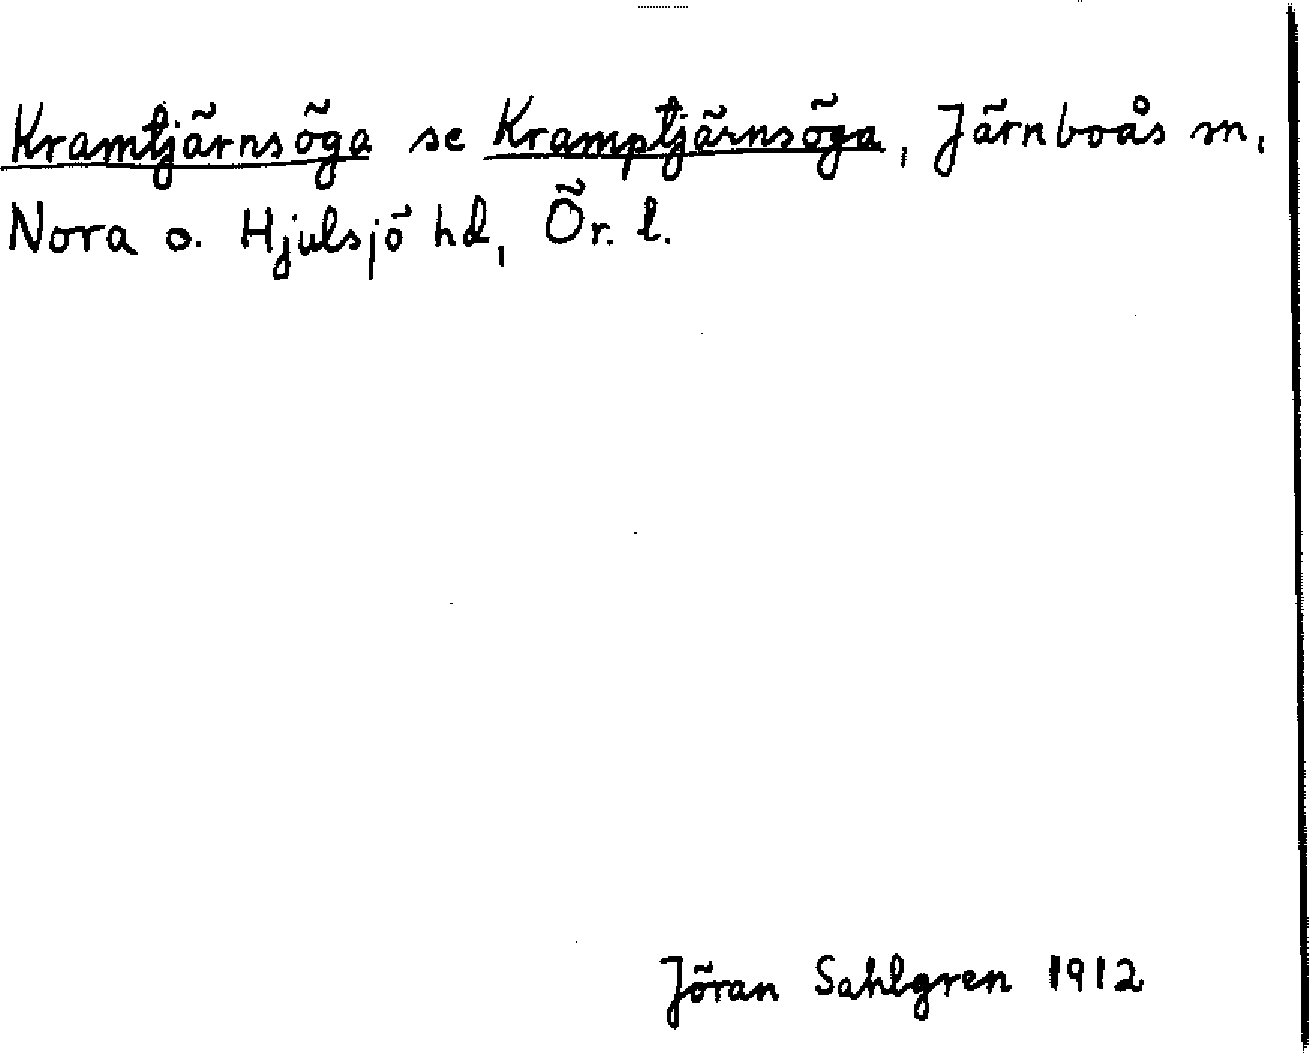 Kramtjärnsöga se Kramptjärnsöga, Järnboås sn,
Nora o. Hjulsjö hd, Ör. l.
Jöran Sahlgren 1912